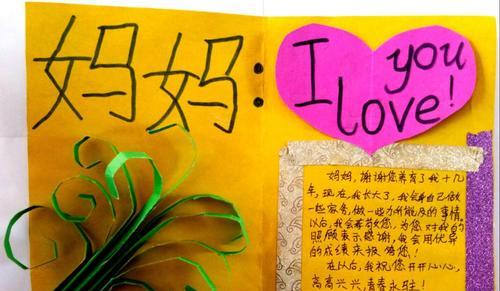 妈妈:
I you
love!
妈妈,谢谢您养育了我十几
年,现在,我长大了,我会靠自己做
一些家务,做一些力所能及的事情.
以后,我会孝敬您,为您对我的
照顾表示感谢,我会用优异
的成绩来报答您!
在以后,我祝您开开心心,
高高兴兴,青春永驻!